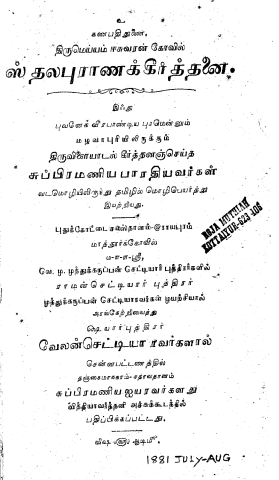 உ
கணபதிதுணை.
திருமெய்யம் ஈசுவரன் கோவில்
ஸ்தலபுராணக்கீர்த்தனை.
இஃது
புவனேக வீரபாண்டிய புரமென்னும்
மழவாபுரியிலிருக்கும்
திருவிளையாடல் கீர்த்தனஞ்செய்த
சுப்பிரமணிய பாரதியவர்கள்
வடமொழியிலிருந்து தமிழில் மொழிபெயர்த்து
இயற்றியது.
புதுக்கோட்டை
மாத்தூர்க்கோவில்
ம-ள-ள-ஸ்ரீ,
வெ. ழ. முத்துக்கருப்பன் செட்டியார் புத்திரர்களில்
ராமன்செட்டியார் புத்திரர்
முத்துக்கருப்பன் செட்டியாரவர்கள் முயற்சியால்
அரங்கேற்றிவைத்து
ஷெயார்புத்திரர்
வேலன்செட்டியாரவர்களால்
சென்னபட்டணத்தில்
தஞ்சைமாநகரம்
சுப்பிரமணிய ஐயரவர்களது
விந்தியாவர்த்தனி அச்சுக்கூடத்தில்
பதிப்பிக்கப்பட்டது.
விஷு ௵ ஆடிமீ
RAJA MUTHIAH
KOTTAIYUR-623 106
1881 JULY-AUG